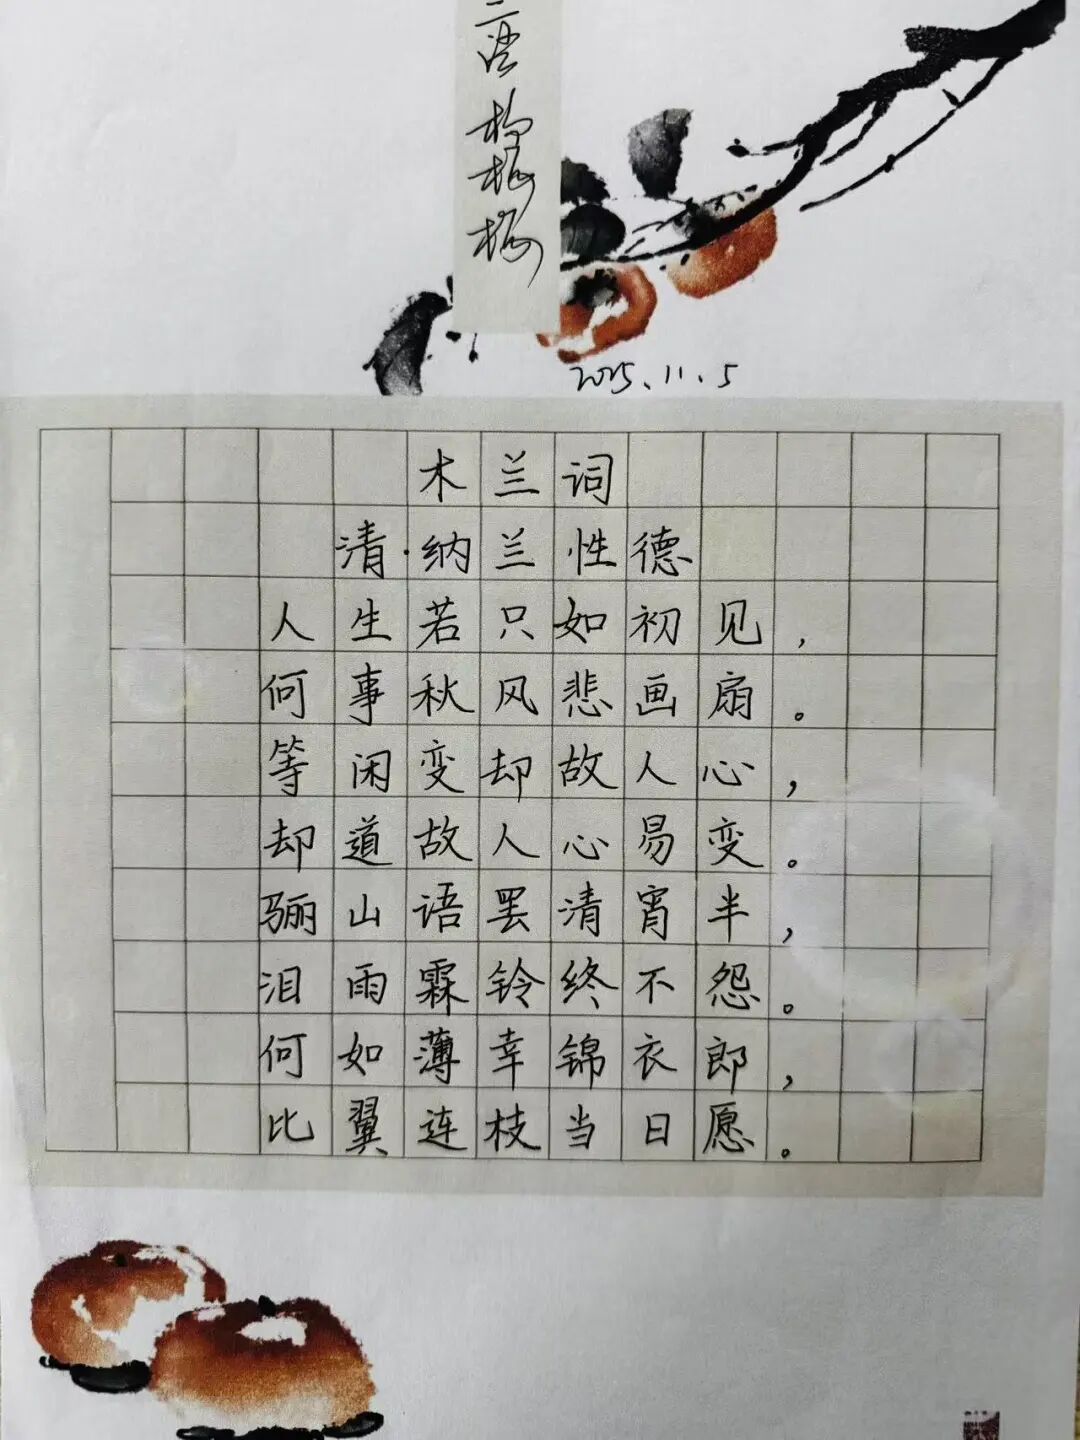 2025.11.5
木兰词
清·纳兰性德
人生若只如初见,
何事秋风悲画扇。
等闲变却故人心,
却道故人心易变。
骊山语罢清宵半,
泪雨霖铃终不怨。
何如薄幸锦衣郎,
比翼连枝当日愿。